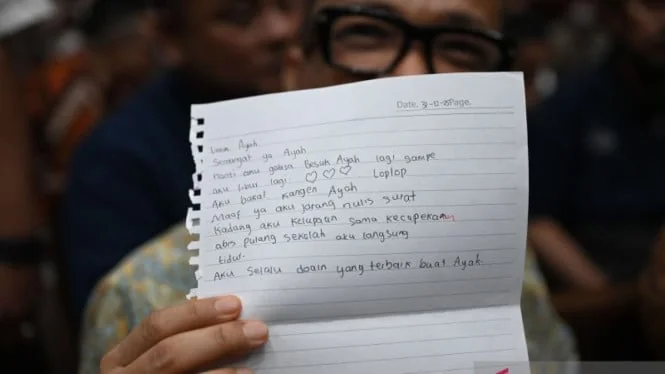 Date, 31-12-25 Page.
Untuk Ayah
Semangat ya Ayah
Nanti aku gabisa Besuk Ayah lagi sampe
aku libur lagi. ♡ ♡ ♡ Loplop
Aku bakal kangen Ayah
Maaf ya aku jarang nulis surat
Kadang aku kelupaan sama kecapekan
abis pulang sekolah aku langsung
tidur.
Aku selalu doain yang terbaik buat Ayah.